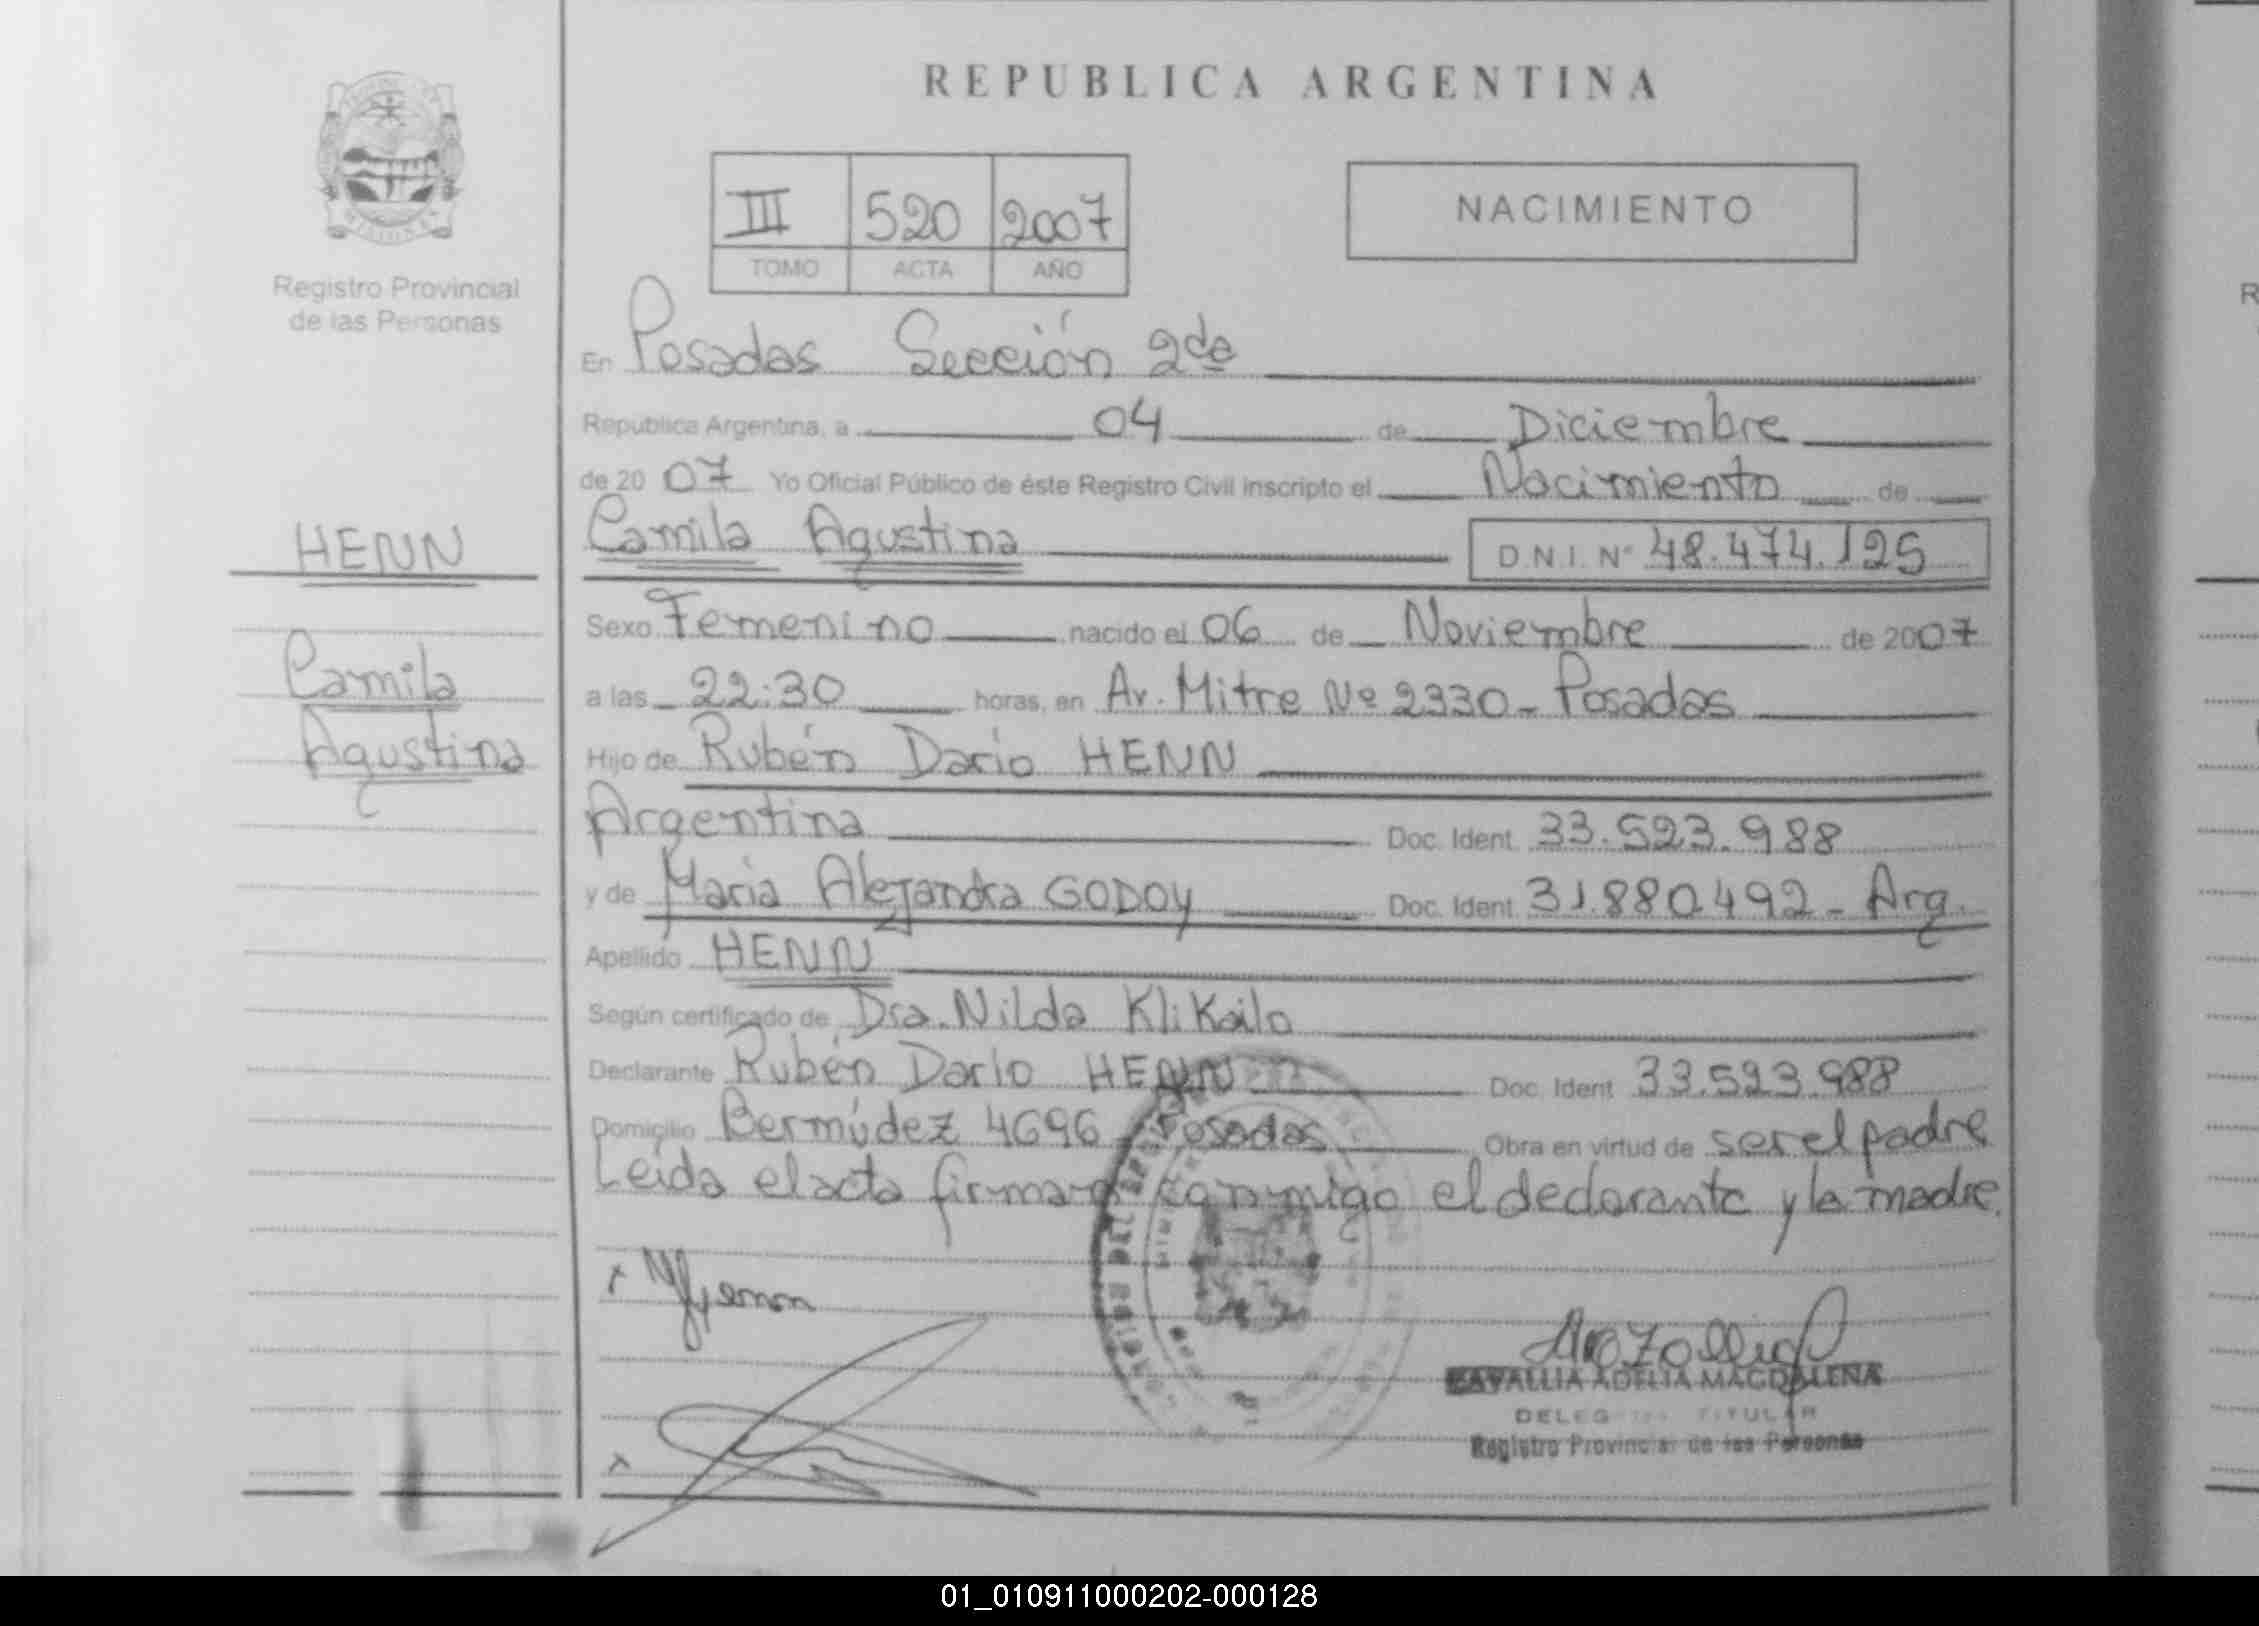 REPUBLICA ARGENTINA
III 520 2007
TOMO ACTA AÑO
NACIMIENTO
Registro Provincial
de las Personas
En Posadas Sección 2da
República Argentina, a 04 de Diciembre
de 2007 Yo Oficial Público de éste Registro Civil inscripto el Nacimiento de
HENN
Camila Agustina D.N.I. Nº 48.474.125
Sexo Femenino nacido el 06 de Noviembre de 2007
Camila
a las 22:30 horas, en Av. Mitre Nº 2330 - Posadas
Agustina
Hijo de Rubén Darío HENN
Argentina Doc. Ident. 33.523.988
y de María Alejandra GODOY Doc. Ident. 31.880.492 - Arg.
Apellido HENN
Según certificado de Dra. Nilda Klikailo
Declarante Rubén Darío HENN Doc. Ident. 33.523.988
Domicilio Bermúdez 4696 Posadas Obra en virtud de ser el padre
Leída el acta firman conmigo el declarante y la madre.
ZAVALLIA ADELIA MAGDALENA
DELEG TITULAR
Registro Provincial de las Personas
01_010911000202-000128